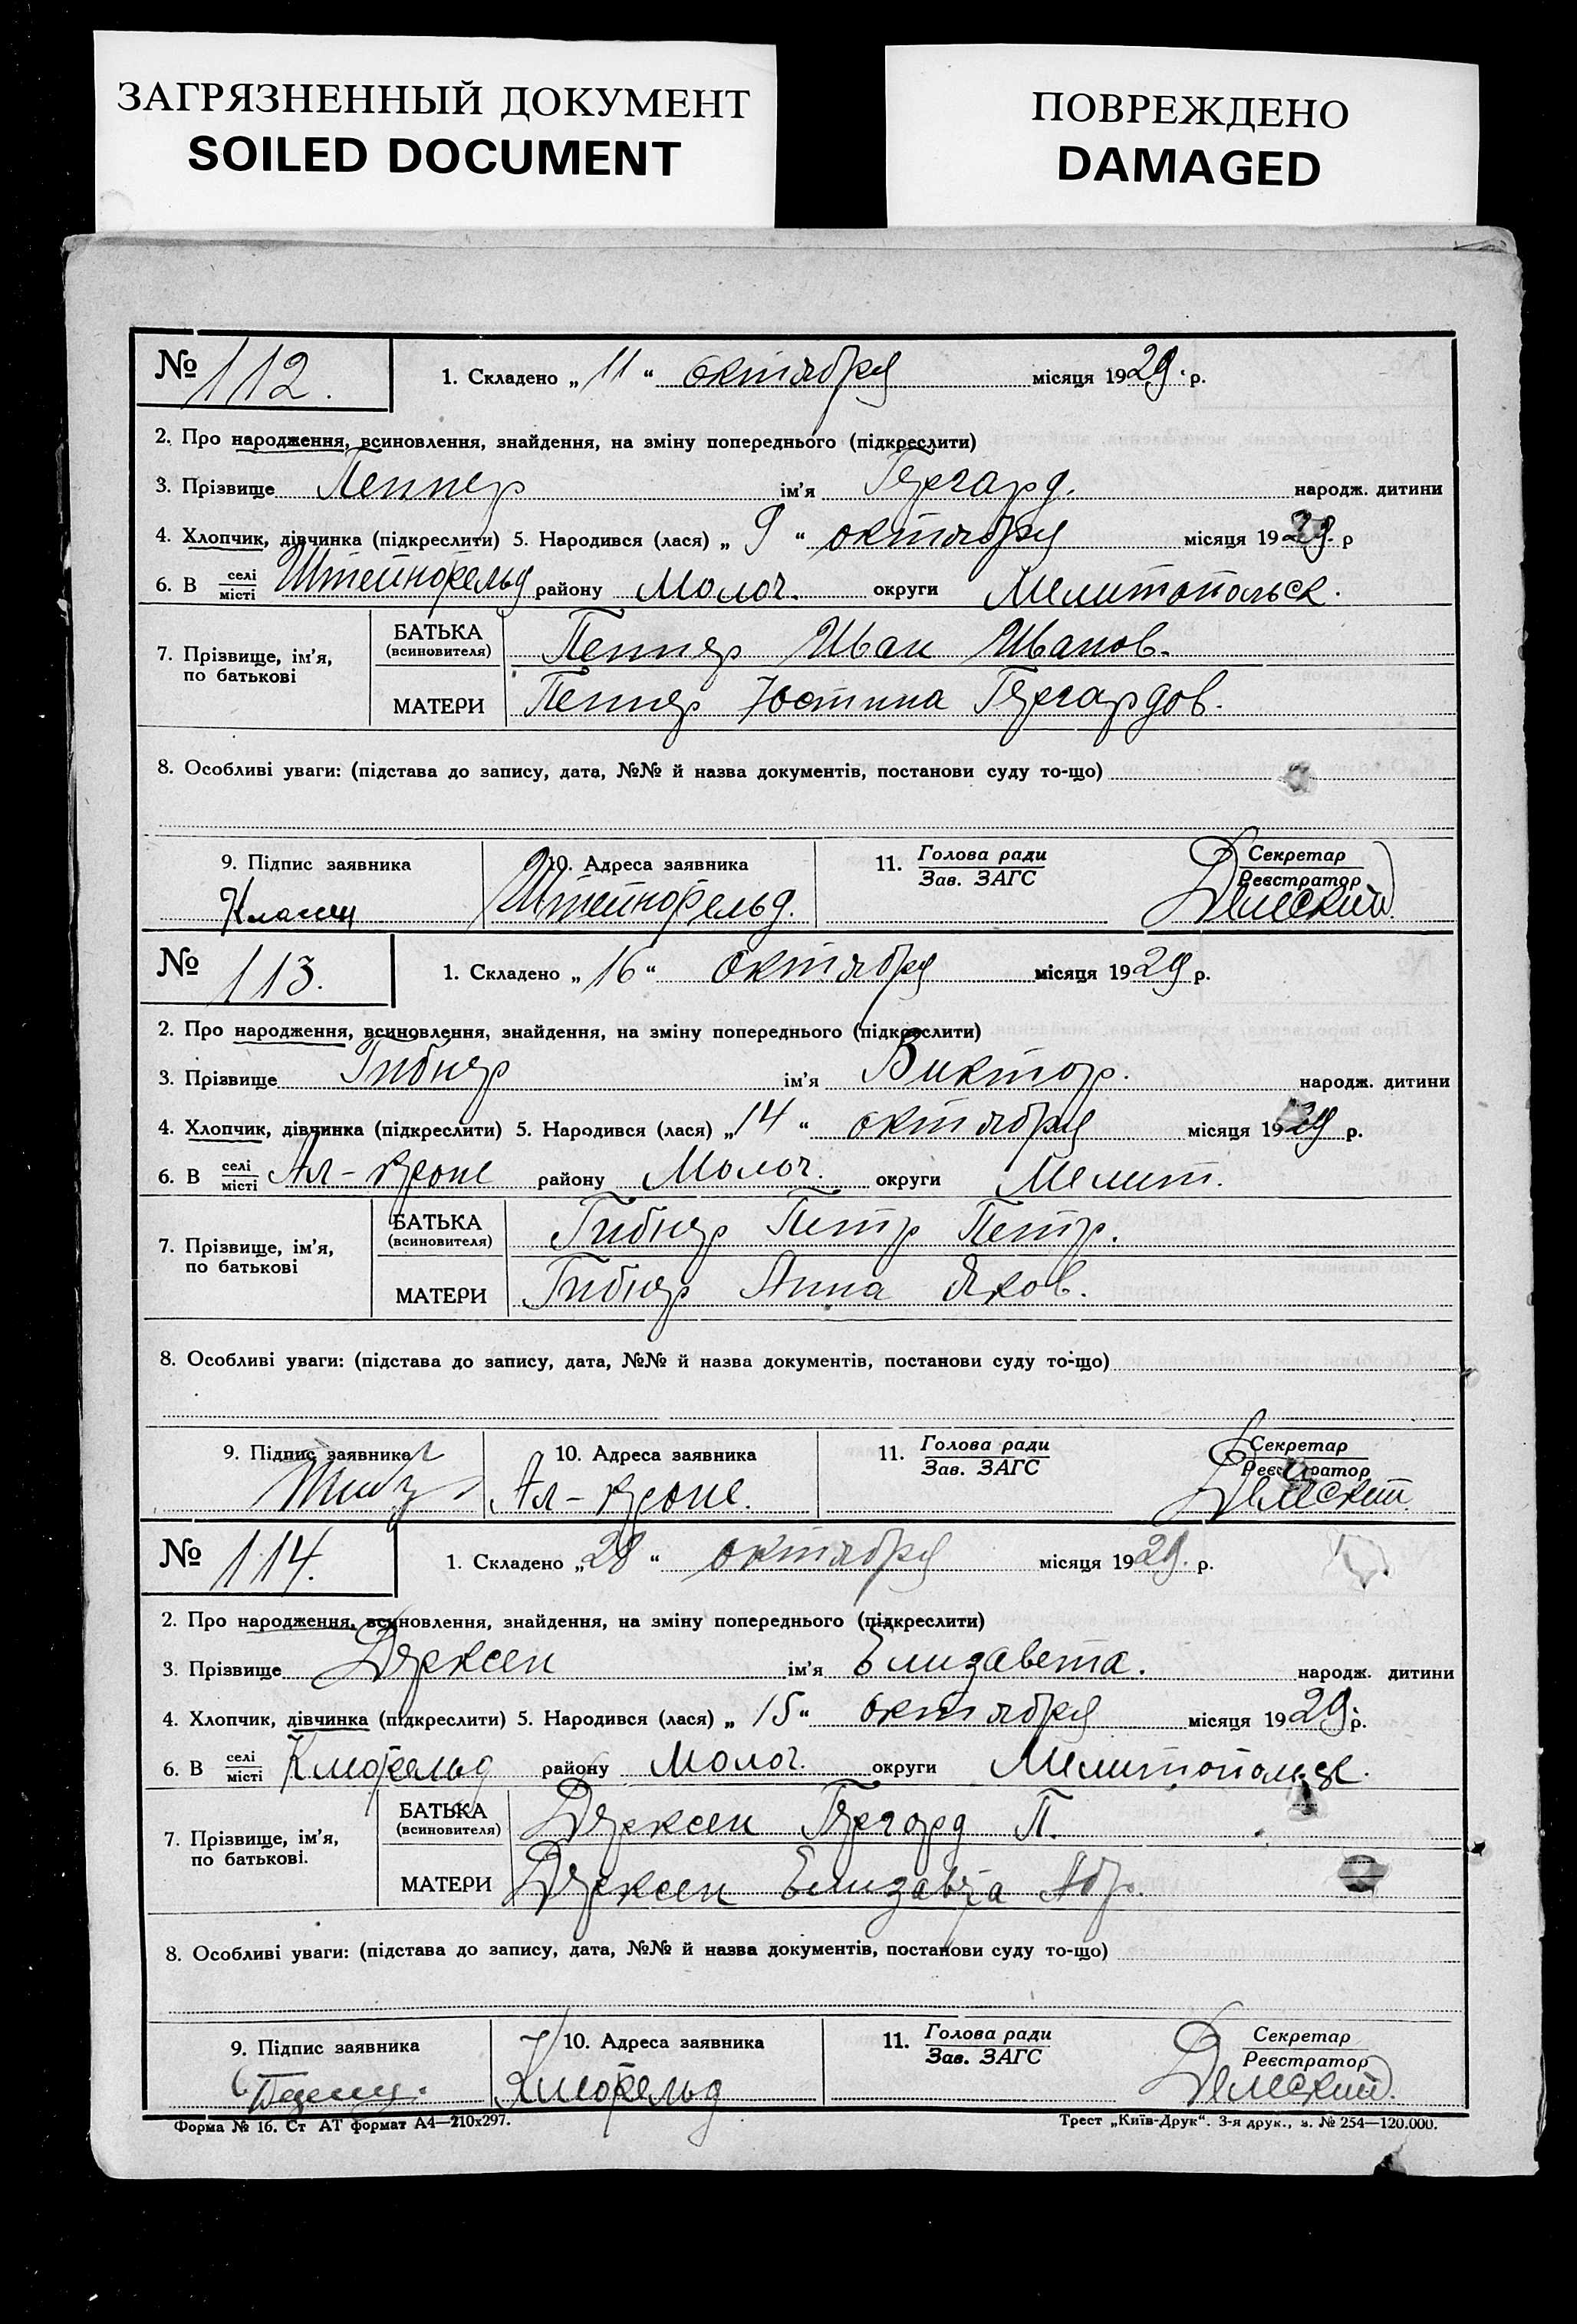 ЗАГРЯЗНЕННЫЙ ДОКУМЕНТ
SOILED DOCUMENT
ПОВРЕЖДЕНО
DAMAGED
№ 112. 1. Складено „ 11 “ октября місяця 1929. р.
2. Про народження, всиновлення, знайдення, на зміну попереднього (підкреслити)
3. Прізвище Пеннер ім'я Гергард. народж. дитини
4. Хлопчик, дівчинка (підкреслити) 5. Народився (лася) „ 9 “ октября місяця 1929. р
6. В селі/місті Штейнфельд району Молоч. округи Мелитопольск.
7. Прізвище, ім'я, по батькові БАТЬКА (всиновителя) Пеннер Иван Иванов.
МАТЕРИ Пеннер Юстина Гергардов.
8. Особливі уваги: (підстава до запису, дата, №№ й назва документів, постанови суду то-що)
9. Підпис заявника 10. Адреса заявника 11. Голова ради/Зав. ЗАГС Секретар/Реєстратор
Классен Штейнфельд.
№ 113. 1. Складено „ 16 “ октября місяця 1929 р.
2. Про народження, всиновлення, знайдення, на зміну попереднього (підкреслити)
3. Прізвище Гибнер ім'я Виктор. народж. дитини
4. Хлопчик, дівчинка (підкреслити) 5. Народився (лася) „ 14 “ октября місяця 1929 р.
6. В селі/місті Ал-Кроне району Молоч. округи Мелит.
7. Прізвище, ім'я, по батькові БАТЬКА (всиновителя) Гибнер Петр Петр.
МАТЕРИ Гибнер Анна Яков.
8. Особливі уваги: (підстава до запису, дата, №№ й назва документів, постанови суду то-що)
9. Підпис заявника 10. Адреса заявника 11. Голова ради/Зав. ЗАГС Секретар/Реєстратор
Ал-Кроне.
№ 114. 1. Складено „ 28 “ октября місяця 1929. р.
2. Про народження, всиновлення, знайдення, на зміну попереднього (підкреслити)
3. Прізвище Дерксен ім'я Елизавета. народж. дитини
4. Хлопчик, дівчинка (підкреслити) 5. Народився (лася) „ 15 “ октября місяця 1929. р.
6. В селі/місті Клефельд району Молоч. округи Мелитопольск.
7. Прізвище, ім'я, по батькові. БАТЬКА (всиновителя) Дерксен Гергард П.
МАТЕРИ Дерксен Елизавета Абр.
8. Особливі уваги: (підстава до запису, дата, №№ й назва документів, постанови суду то-що)
9. Підпис заявника 10. Адреса заявника 11. Голова ради/Зав. ЗАГС Секретар/Реєстратор
Клефельд
Форма № 16. Ст АТ формат А4—210х297. Трест „Київ-Друк“. 3-я друк., з. № 254—120.000.